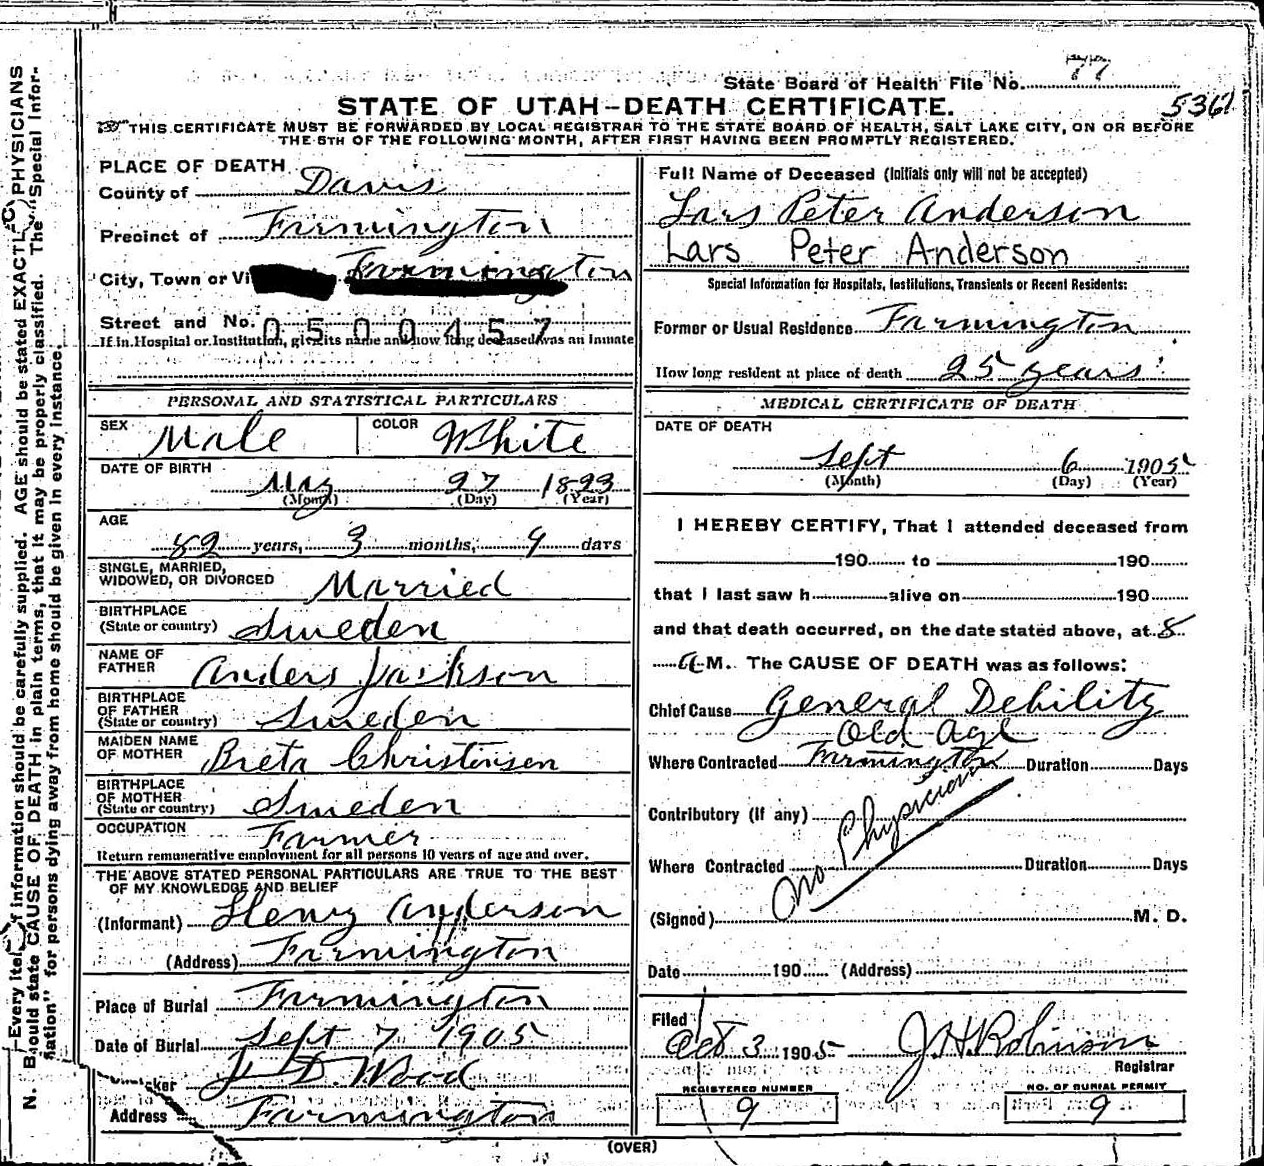 State Board of Health File No. 77
5361
STATE OF UTAH—DEATH CERTIFICATE.
THIS CERTIFICATE MUST BE FORWARDED BY LOCAL REGISTRAR TO THE STATE BOARD OF HEALTH, SALT LAKE CITY, ON OR BEFORE
THE 5TH OF THE FOLLOWING MONTH, AFTER FIRST HAVING BEEN PROMPTLY REGISTERED.
PLACE OF DEATH
County of Davis
Precinct of Farmington
City, Town or Vi Farmington
Street and No. 0500457
If in Hospital or Institution, give its name and how long deceased was an inmate
PERSONAL AND STATISTICAL PARTICULARS
SEX Male COLOR White
DATE OF BIRTH
May 27 1823
(Month) (Day) (Year)
AGE
82 years, 3 months, 9 days
SINGLE, MARRIED,
WIDOWED, OR DIVORCED Married
BIRTHPLACE
(State or country) Sweden
NAME OF
FATHER Anders Jackson
BIRTHPLACE
OF FATHER
(State or country) Sweden
MAIDEN NAME
OF MOTHER Breta Christensen
BIRTHPLACE
OF MOTHER
(State or country) Sweden
OCCUPATION Farmer
Return remunerative employment for all persons 10 years of age and over.
THE ABOVE STATED PERSONAL PARTICULARS ARE TRUE TO THE BEST
OF MY KNOWLEDGE AND BELIEF
(Informant) Henry Anderson
(Address) Farmington
Place of Burial Farmington
Date of Burial Sept 7 1905
ker D. Wood
Address Farmington
Full Name of Deceased (Initials only will not be accepted)
Lars Peter Anderson
Lars Peter Anderson
Special Information for Hospitals, Institutions, Transients or Recent Residents:
Former or Usual Residence Farmington
How long resident at place of death 25 years
MEDICAL CERTIFICATE OF DEATH
DATE OF DEATH
Sept 6 1905
(Month) (Day) (Year)
I HEREBY CERTIFY, That I attended deceased from
190 to 190
that I last saw h alive on 190
and that death occurred, on the date stated above, at 8
A M. The CAUSE OF DEATH was as follows:
Chief Cause General Debility
Old Age
Where Contracted Farmington Duration Days
Contributory (If any)
No Physician
Where Contracted Duration Days
(Signed) M. D.
Date 190 (Address)
Filed
Oct 3 1905 J. H. Robinson
Registrar
REGISTERED NUMBER
9
NO. OF BURIAL PERMIT
9
(OVER)
N. B.—Every item of information should be carefully supplied. AGE should be stated EXACTLY. PHYSICIANS
should state CAUSE OF DEATH in plain terms, that it may be properly classified. The "Special Infor-
mation" for persons dying away from home should be given in every instance.